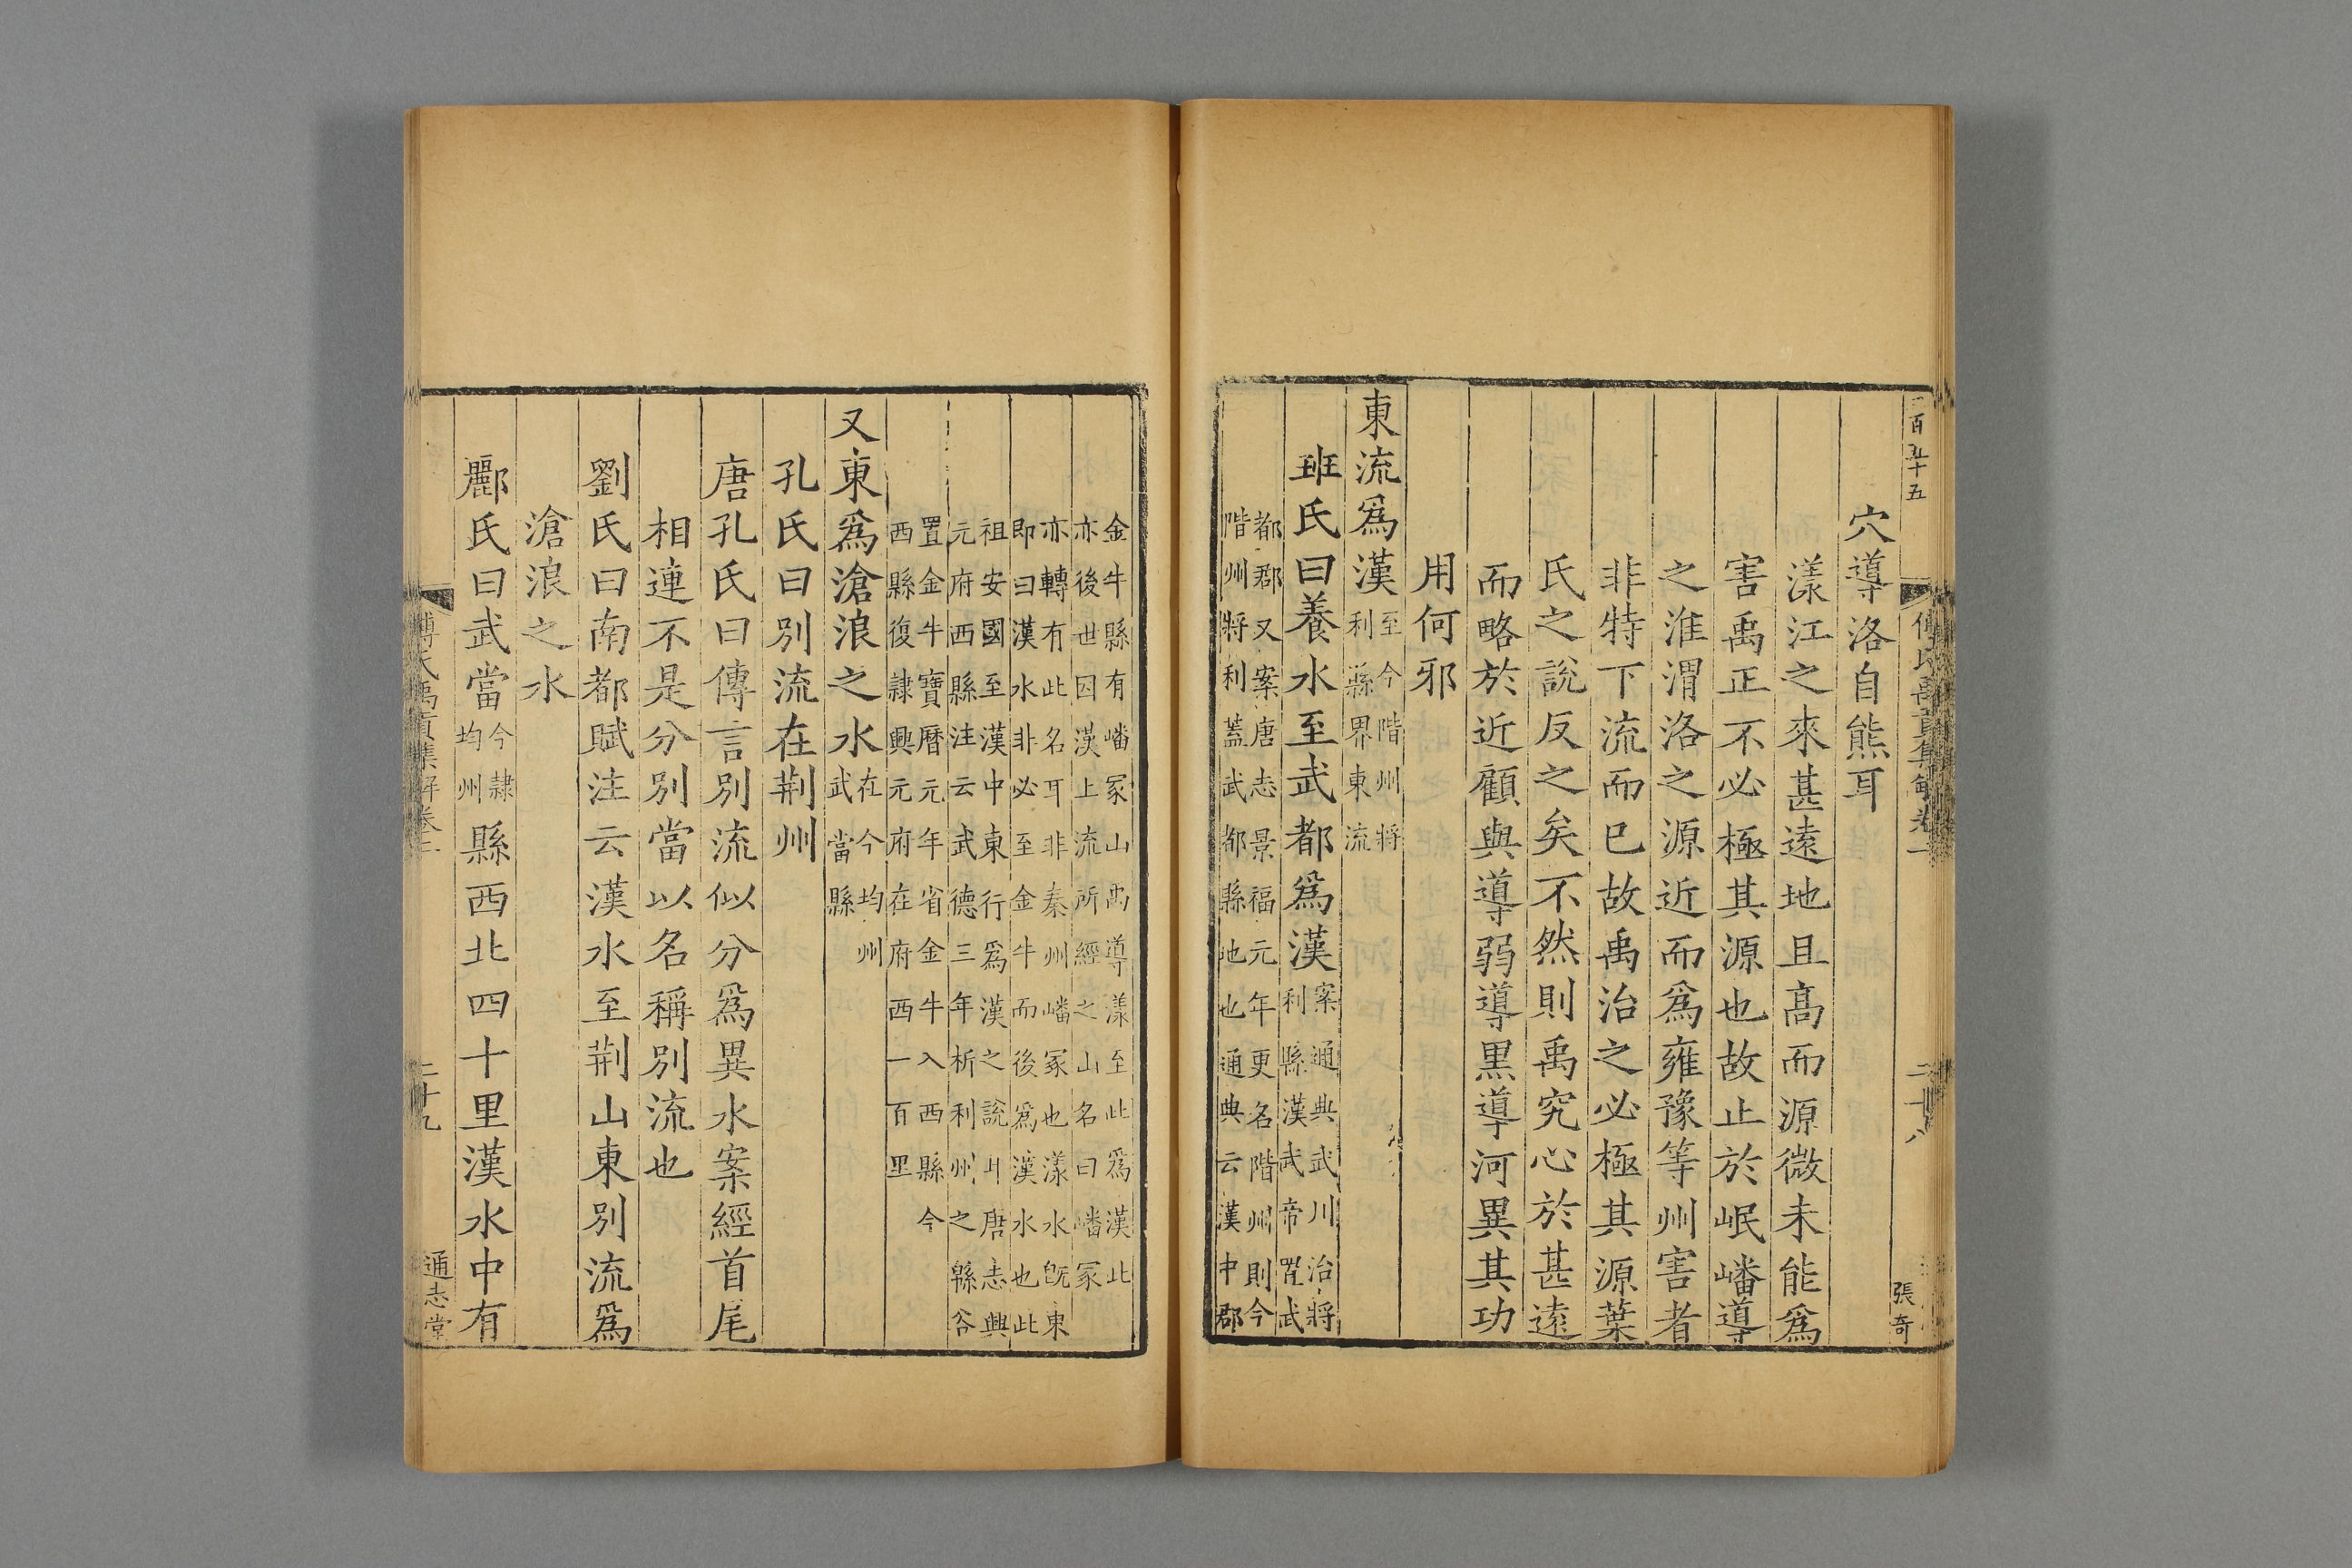 穴導洛自熊耳
漾江之來甚遠地且高而源微未能爲
害禹正不必極其源也故止於岷嶓導
之淮渭洛之源近而爲雍豫等州害者
非特下流而已故禹治之必極其源葉
氏之說反之矣不然則禹究心於甚遠
而略於近顧與導弱導黑導河異其功
用何邪
東流爲漢至今階州將利縣界東流
班氏曰養水至武都爲漢案通典武川治將利縣漢武帝置武
都郡又案唐志景福元年更名階州則今
階州將利蓋武都縣地也通典云漢中郡
張奇
金牛縣有嶓冢山禹導漾至此爲漢此
亦後世因漢上流所經之山名曰嶓冢
亦轉有此名耳非秦州嶓冢也漾水旣東
即曰漢水非必至金牛而後爲漢水也此
祖安國至漢中東行爲漢之說丩唐志興
元府西縣注云武德三年析利州之緜谷
置金牛寶曆元年省金牛入西縣今
西縣復隸興元府在府西一百里
又東爲滄浪之水在今均州武當縣
孔氏曰別流在荆州
唐孔氏曰傳言別流似分爲異水案經首尾
相連不是分別當以名稱別流也
劉氏曰南都賦注云漢水至荆山東別流爲
滄浪之水
酈氏曰武當今隸均州縣西北四十里漢水中有
二十九
通志堂